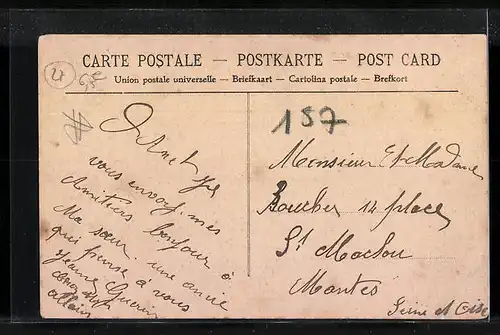 CARTE POSTALE — POSTKARTE — POST CARD
Union postale universelle — Briefkaart — Cartolina postale — Brefkort
157
Je
vous envoy mes
Amitiers bonjour à
Ma sœur. une amie
qui pense à vous
Jeanne Guerin
allain
Monsieur et Madame
Boucher 12 place
St Maclou
Mantes
Seine et Oise